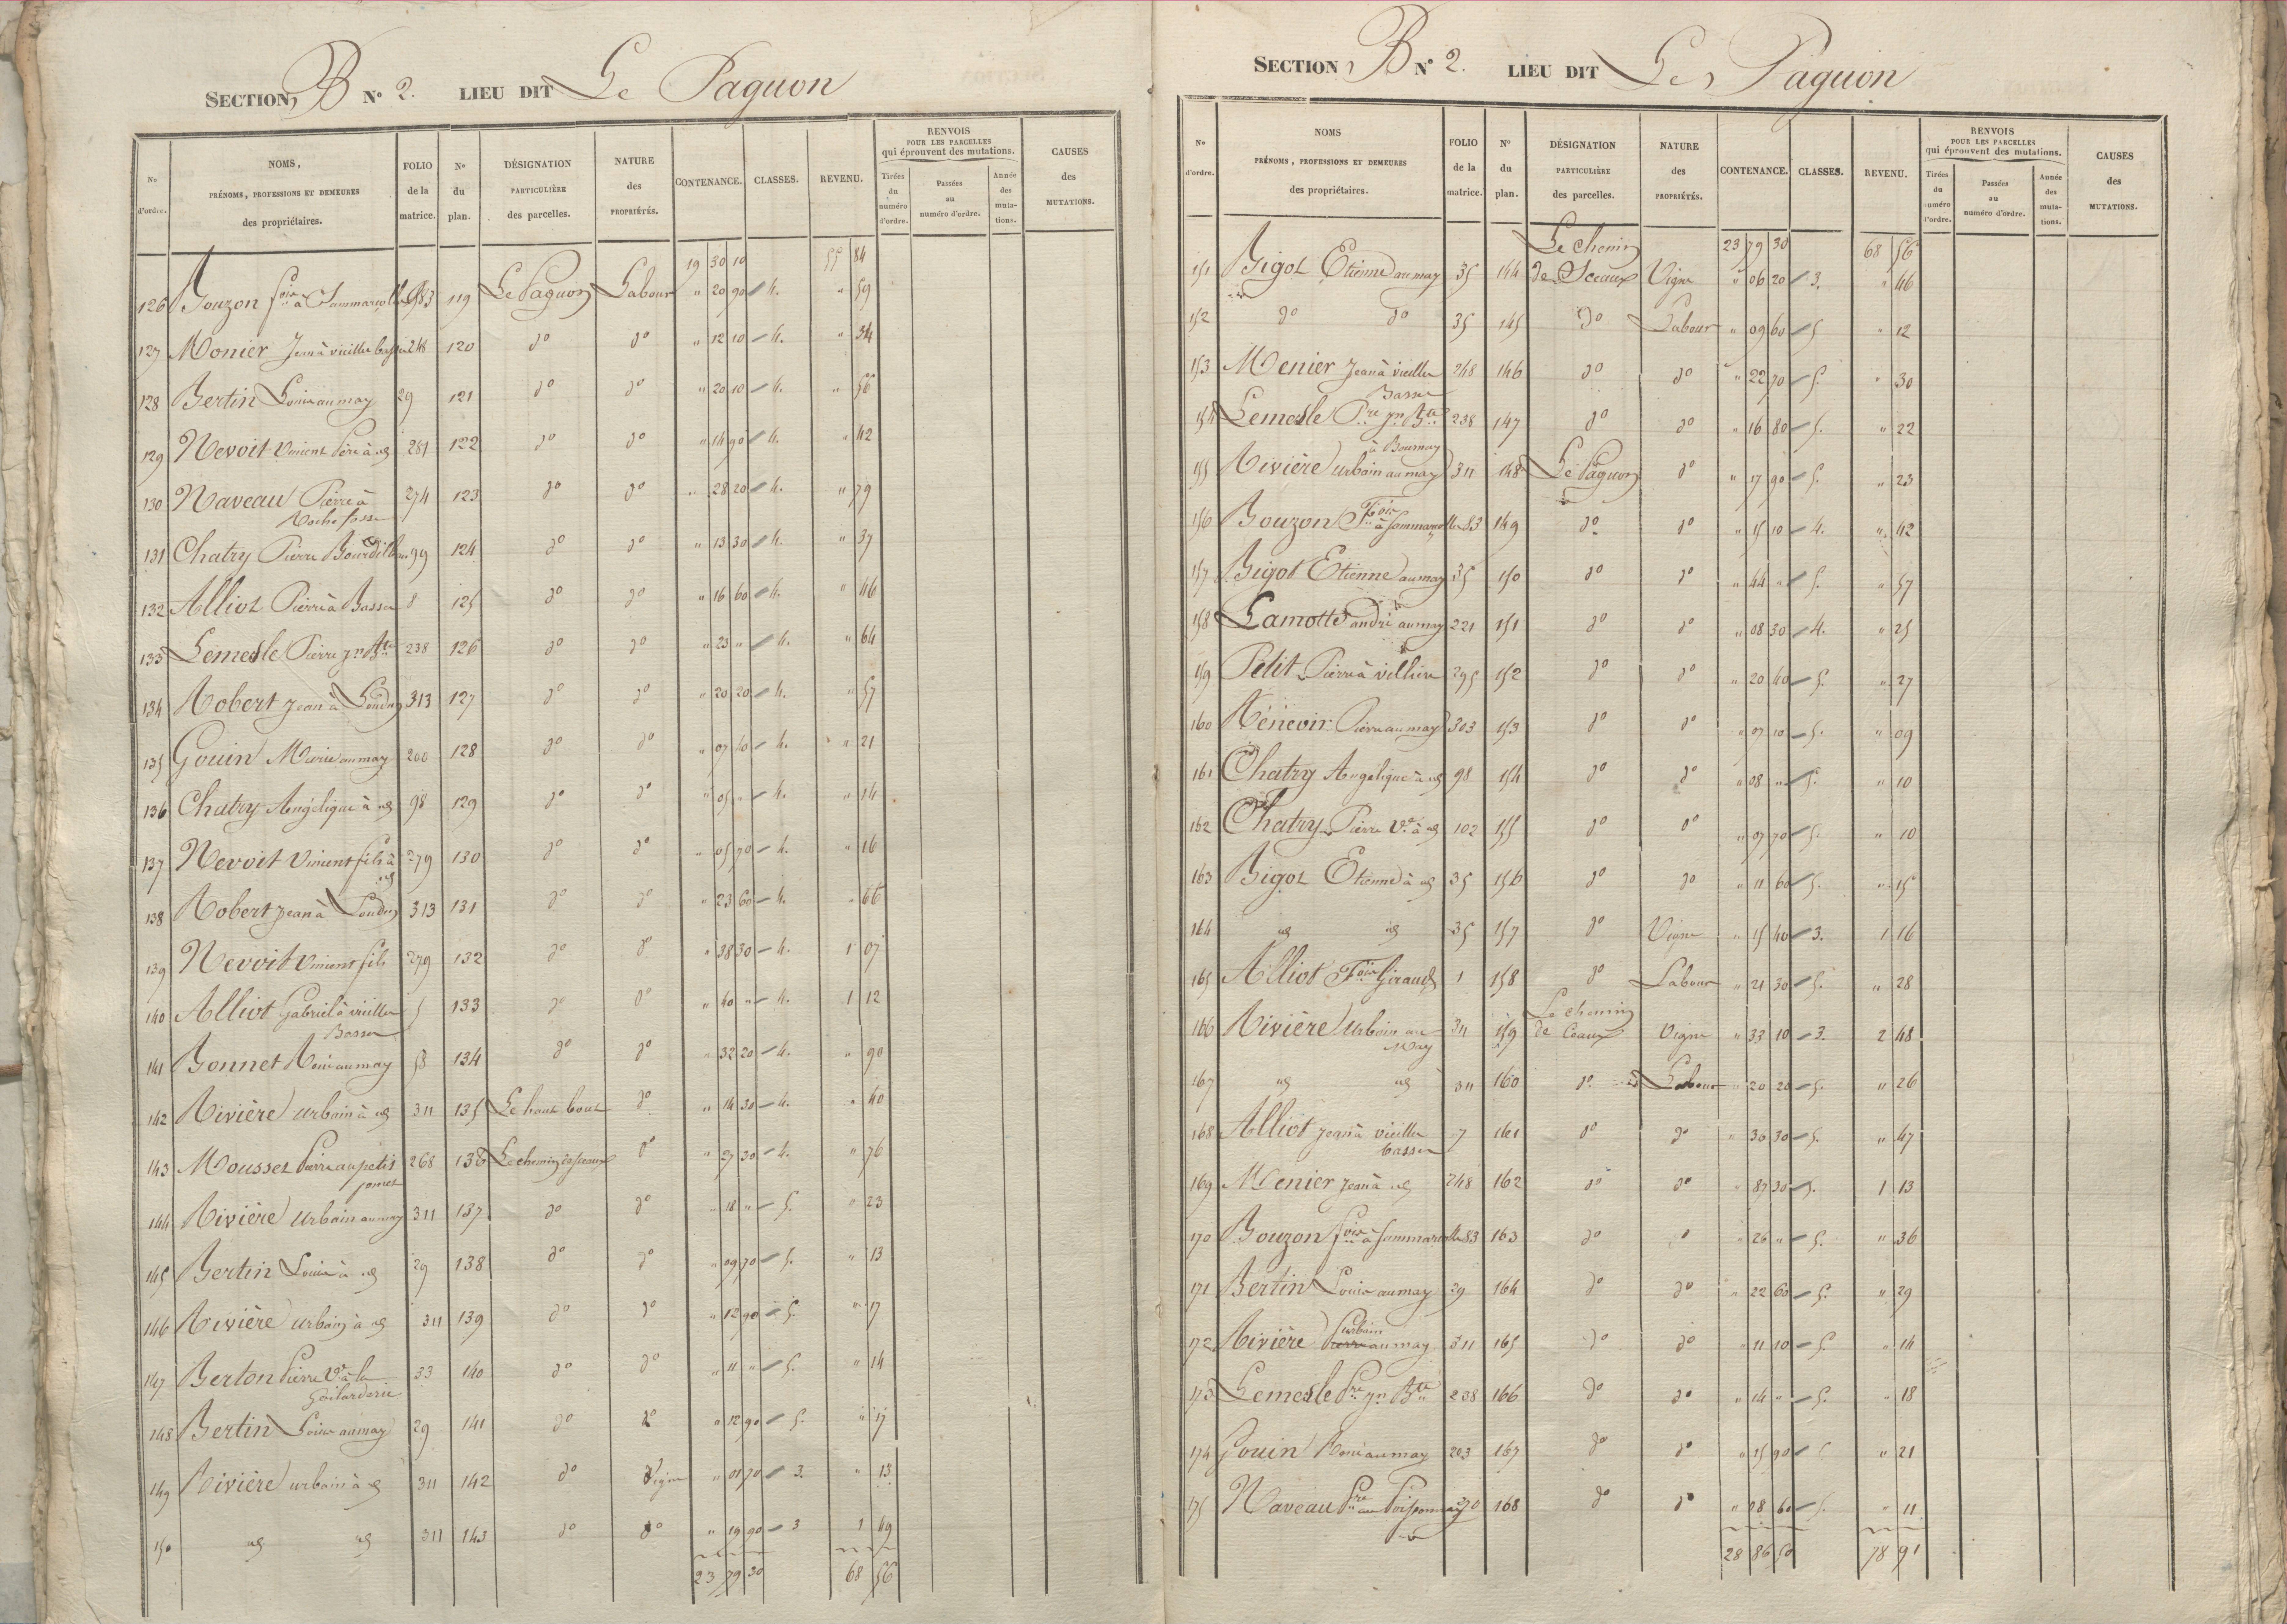 SECTION B N° 2. LIEU DIT Le Paguon
N° d'ordre. NOMS, PRÉNOMS, PROFESSIONS ET DEMEURES des propriétaires. FOLIO de la matrice. N° du plan. DÉSIGNATION PARTICULIÈRE des parcelles. NATURE des PROPRIÉTÉS. CONTENANCE. CLASSES. REVENU. RENVOIS POUR LES PARCELLES qui éprouvent des mutations. Tirées du numéro d'ordre. Passées au numéro d'ordre. Année des mutations. CAUSES des MUTATIONS.
19 30 10 55 84
126 Bouzon fois à Sammarcolle 83 119 Le Paguon Labour " 20 90 4. " 59
127 Monier Jean à vieille basse 248 120 do do " 12 10 4. " 34
128 Bertin Louis au may 29 121 do do " 20 10 4. " 56
129 Nevoit Vincent Père à id 281 122 do do " 14 90 4. " 42
130 Naveau Pierre à Roche fosse 274 123 do do " 28 20 4. " 79
131 Chatry Pierre Bourdilleau 99 124 do do " 13 30 4. " 37
132 Alliot Pierre à Basse 8 125 do do " 16 60 4. " 46
133 Lemesle Pierre jn Bte 238 126 do do " 23 " 4. " 64
134 Robert Jean à Loudun 313 127 do do " 20 20 4. " 57
135 Gouin Marie au may 200 128 do do " 07 40 4. " 21
136 Chatry Angélique à id 98 129 do do " 05 " 4. " 14
137 Nevoit Vincent fils à id 279 130 do do " 05 70 4. " 16
138 Robert Jean à Loudun 313 131 do do " 23 60 4. " 66
139 Nevoit Vincent fils 279 132 do do " 38 30 4. 1 07
140 Alliot Gabriel à vieille Basse 5 133 do do " 40 " 4. 1 12
141 Bonnet René au may 58 134 do do " 32 20 4. " 90
142 Rivière Urbain à id 311 135 Le haut bout do " 14 30 4. " 40
143 Mousset Pierre au petit 268 136 Le chemin de Sceaux do " 27 30 4. " 76
144 Rivière Urbain au may 311 137 do do " 18 " 5. " 23
145 Bertin Louis à id 29 138 do do " 09 70 5. " 13
146 Rivière Urbain à id 311 139 do do " 12 90 5. " 17
147 Berton Pierre Ve à la Gailarderie 33 140 do do " 11 " 5. " 14
148 Bertin Louis au may 29 141 do do " 12 90 5. " 17
149 Rivière urbain à id 311 142 do Vigne " 01 70 3. " 13
150 id id 311 143 do do " 19 90 3 1 69
23 79 30 68 56
SECTION B N° 2. LIEU DIT Le Paguon
N° d'ordre. NOMS PRÉNOMS, PROFESSIONS ET DEMEURES des propriétaires. FOLIO de la matrice. N° du plan. DÉSIGNATION PARTICULIÈRE des parcelles. NATURE des PROPRIÉTÉS. CONTENANCE. CLASSES. REVENU. RENVOIS POUR LES PARCELLES qui éprouvent des mutations. Tirées du numéro d'ordre. Passées au numéro d'ordre. Année des mutations. CAUSES des MUTATIONS.
23 79 30 68 56
151 Bigot Etienne au may 35 144 Le chemin de Sceaux Vigne " 06 20 3. " 46
152 do do 35 145 do Labour " 09 60 5 " 12
153 Menier Jean à vieille Basse 248 146 do do " 22 70 5. " 30
154 Lemesle Pre jn Bte à Bournay 238 147 do do " 16 80 5. " 22
155 Rivière urbain au may 311 148 Le Paguon do " 17 90 5. " 23
156 Bouzon Fois à Sammarcolle 83 149 do do " 15 10 4. " 42
157 Bigot Etienne au may 35 150 do do " 44 " 5. " 57
158 Lamotte andré au may 221 151 do do " 08 30 4. " 25
159 Petit Pierre à villiere 295 152 do do " 20 40 5. " 27
160 Rénevoir Pierre au may 303 153 do do " 07 10 5. " 09
161 Chatry Angélique à id 98 154 do do " 08 " 5. " 10
162 Chatry Pierre Ve à id 102 155 do do " 07 70 5. " 10
163 Bigot Etienne à id 35 156 do do " 11 60 5. " 15
164 id id 35 157 do Vigne " 15 40 3. 1 16
165 Alliot Fois Giraud 1 158 do Labour " 21 30 5. " 28
166 Rivière Urbain au May 311 159 Le chemin de Ceaux Vigne " 33 10 3. 2 48
167 id id 311 160 do Labour " 20 20 5. " 26
168 Alliot Jean à vieille basse 7 161 do do " 36 30 5. " 47
169 Menier Jean à id 248 162 do do " 87 30 5. 1 13
170 Bouzon fois à Sammarcolle 83 163 do do " 26 " 5. " 36
171 Bertin Louis au may 29 164 do do " 22 60 5. " 29
172 Rivière urbain Pierre au may 311 165 do do " 11 10 5. " 14
173 Lemesle Pre jn Bte 238 166 do do " 14 " 5. " 18
174 Gouin René au may 203 167 do do " 15 90 5 " 21
175 Naveau Pre au Poisponnay 270 168 do do " 08 60 5. " 11
28 86 50 78 91